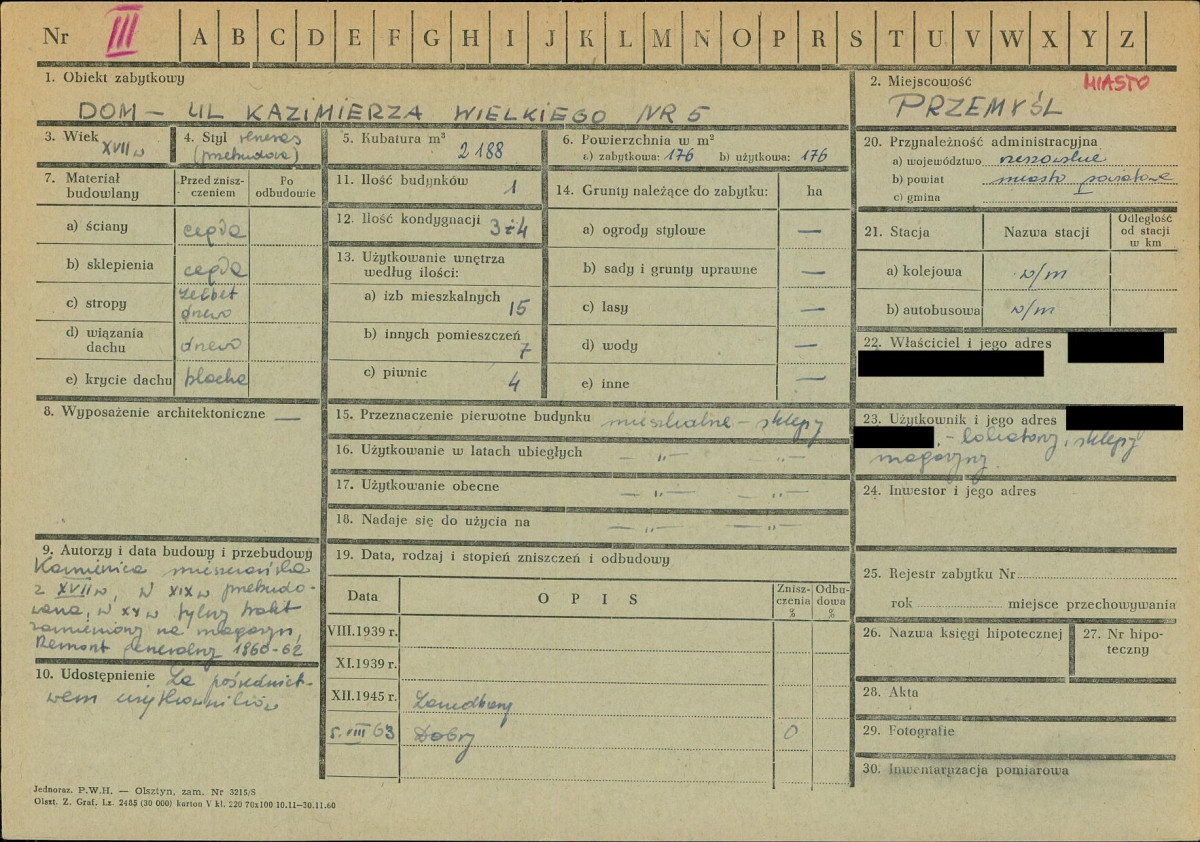 Nr III A B C D E F G H I J K L M N O P R S T U V W X Y Z
1. Obiekt zabytkowy
DOM – UL KAZIMIERZA WIELKIEGO NR 5
2. Miejscowość MIASTO
PRZEMYŚL
3. Wiek
XVII w
4. Styl renesans
(przebudowa)
5. Kubatura m³
2188
6. Powierzchnia w m²
a) zabytkowa: 176 b) użytkowa: 176
7. Materiał budowlany
Przed zniszczeniem
Po odbudowie
a) ściany cegła
b) sklepienia cegła
c) stropy żelbet
drewo
d) wiązania
dachu drewo
e) krycie dachu blacha
8. Wyposażenie architektoniczne —
9. Autorzy i data budowy i przebudowy
Kamienica mieszczańska
z XVII w, w XIX w przebudo-
wana, w XX w tylny trakt
zamieniony na magazyn,
Remont generalny 1960-62
10. Udostępnienie Za pośrednict-
wem użytkowników
11. Ilość budynków 1
12. Ilość kondygnacji 3 i 4
13. Użytkowanie wnętrza
według ilości:
a) izb mieszkalnych 15
b) innych pomieszczeń 7
c) piwnic 4
14. Grunty należące do zabytku: ha
a) ogrody stylowe —
b) sady i grunty uprawne —
c) lasy —
d) wody —
e) inne —
15. Przeznaczenie pierwotne budynku mieszkalne – sklepy
16. Użytkowanie w latach ubiegłych — „ — — „ —
17. Użytkowanie obecne — „ — — „ —
18. Nadaje się do użycia na — „ — — „ —
19. Data, rodzaj i stopień zniszczeń i odbudowy
Data
O P I S
Znisz-
czenia
%
Odbu-
dowa
%
VIII.1939 r.
XI.1939 r.
XII.1945 r. Zaniedbany
5. VIII 63 Dobry 0
20. Przynależność administracyjna
a) województwo rzeszowskie
b) powiat miasto powiatowe
c) gmina
21. Stacja
Nazwa stacji
Odległość
od stacji
w km
a) kolejowa w/m
b) autobusowa w/m
22. Właściciel i jego adres
23. Użytkownik i jego adres
– lokatorzy, sklepy
magazyny
24. Inwestor i jego adres
25. Rejestr zabytku Nr
rok miejsce przechowywania
26. Nazwa księgi hipotecznej
27. Nr hipo-
teczny
28. Akta
29. Fotografie
30. Inwentaryzacja pomiarowa
Jednoraz. P.W.H. — Olsztyn, zam. Nr 3215/S
Olszt. Z. Graf. Lz. 2485 (30 000) karton V kl. 220 70x100 10.11—30.11.60